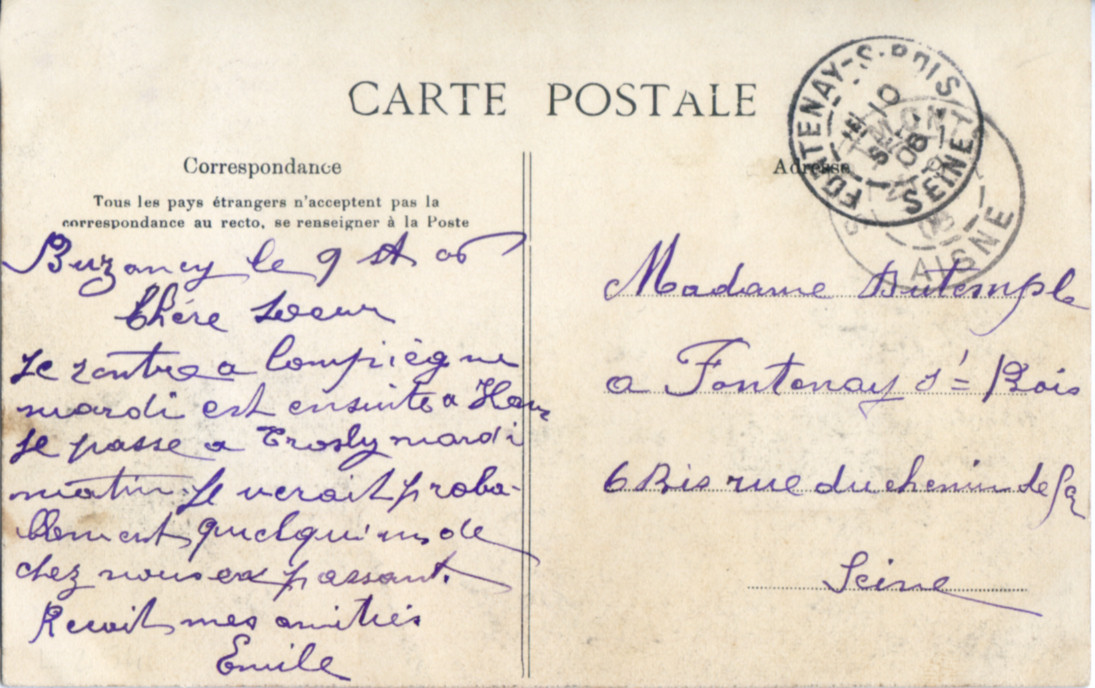 CARTE POSTALE
Correspondance
Tous les pays étrangers n'acceptent pas la
correspondance au recto, se renseigner à la Poste
Adresse
FONTENAY-S-BOIS
SEINE
10
08
AISNE
Buzancy le 9
Chére Soeur
Je rentre a Compiégne
mardi est ensuite a Ham
Je passe a Trosly mardi
matin Je verait proba-
blement quelqu'un de
chez nous en passant.
Recoit mes amitiés
Emile
Madame Dutemple
a Fontenay s/s Bois
6 Bis rue du chemin de
Seine